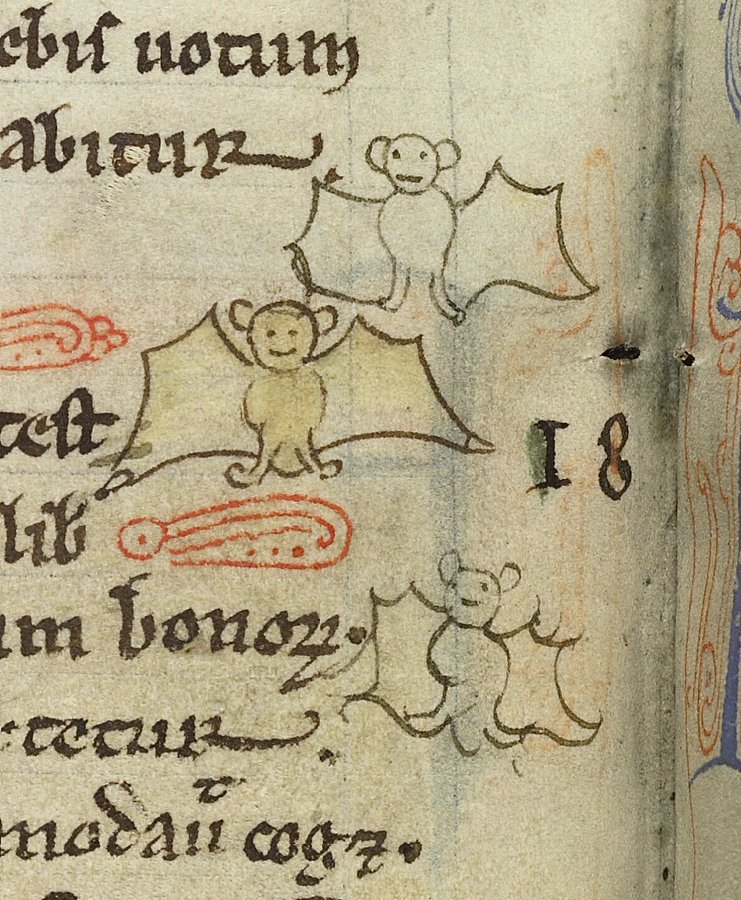 ebis uotum
abitur
test
18
lib
um bonoꝝ.
tetur.
modaū cog